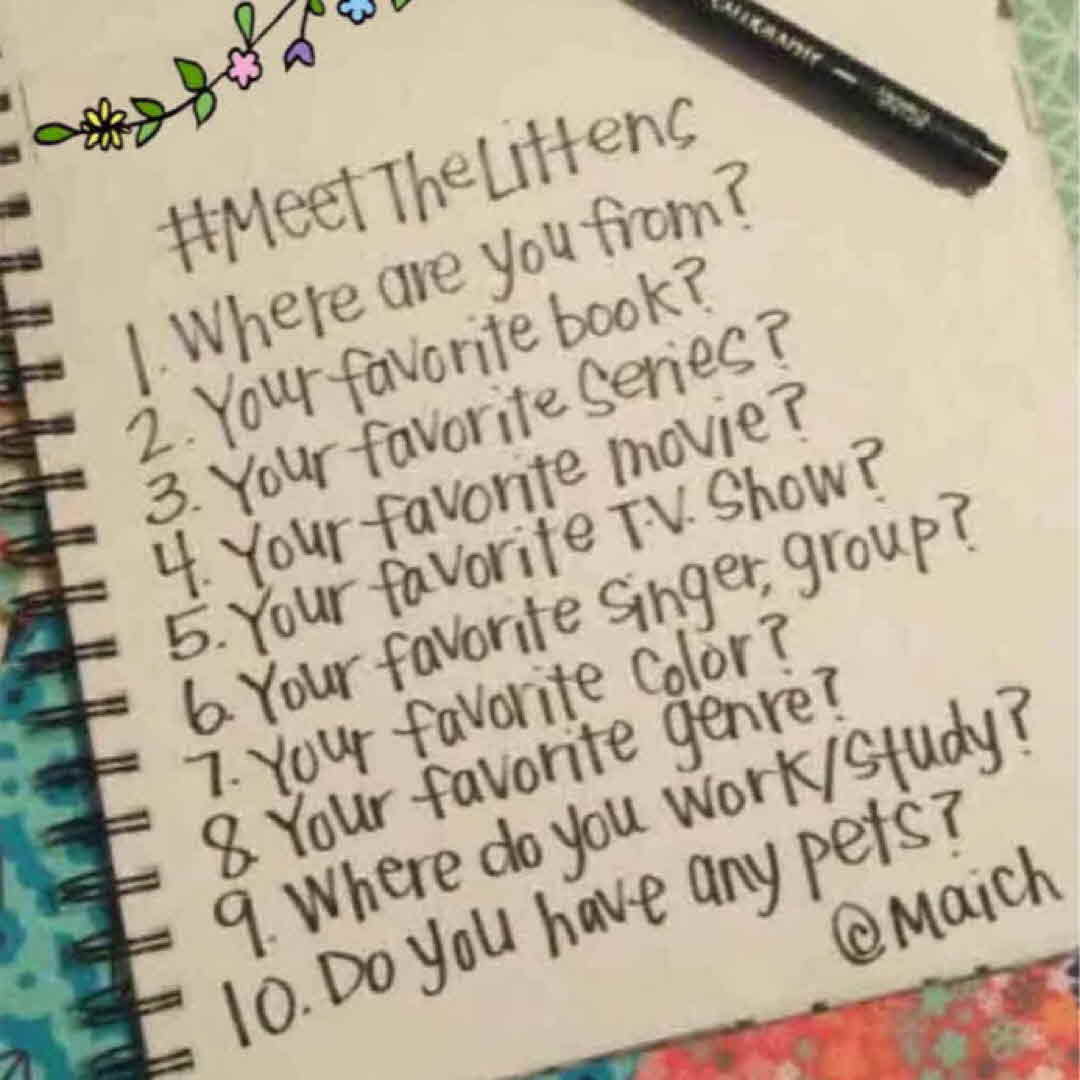 CALLIGRAPHY
#MeetTheLittens
1. Where are you from?
2. Your favorite book?
3. Your favorite Series?
4. Your favorite movie?
5. Your favorite T.V. Show?
6. Your favorite singer, group?
7. Your favorite color?
8. Your favorite genre?
9. Where do you work/study?
10. Do you have any pets?
@Maich